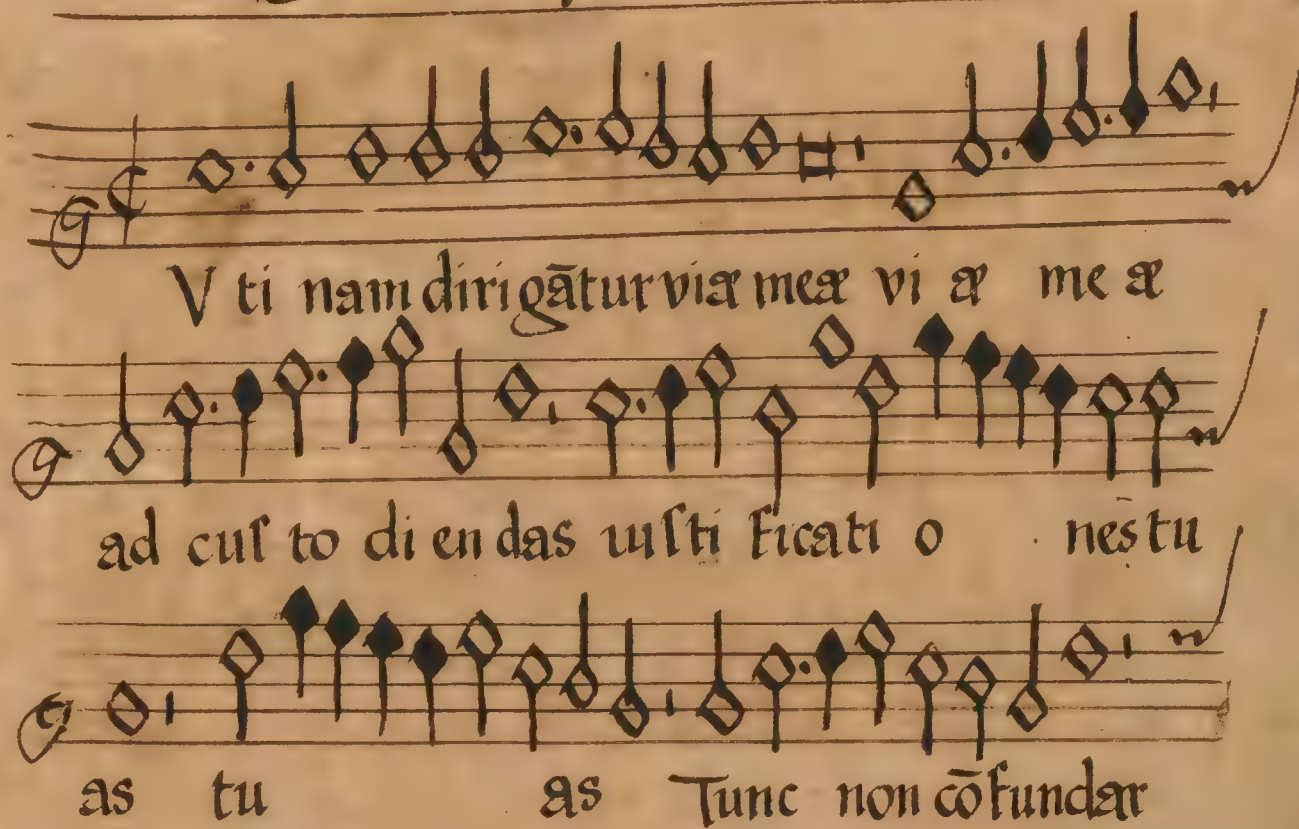 V ti nam dirigātur viæ meæ vi æ me æ
ad cuſ to di en das iuſti ficati o nes tu
as tu as Tunc non cōfundar